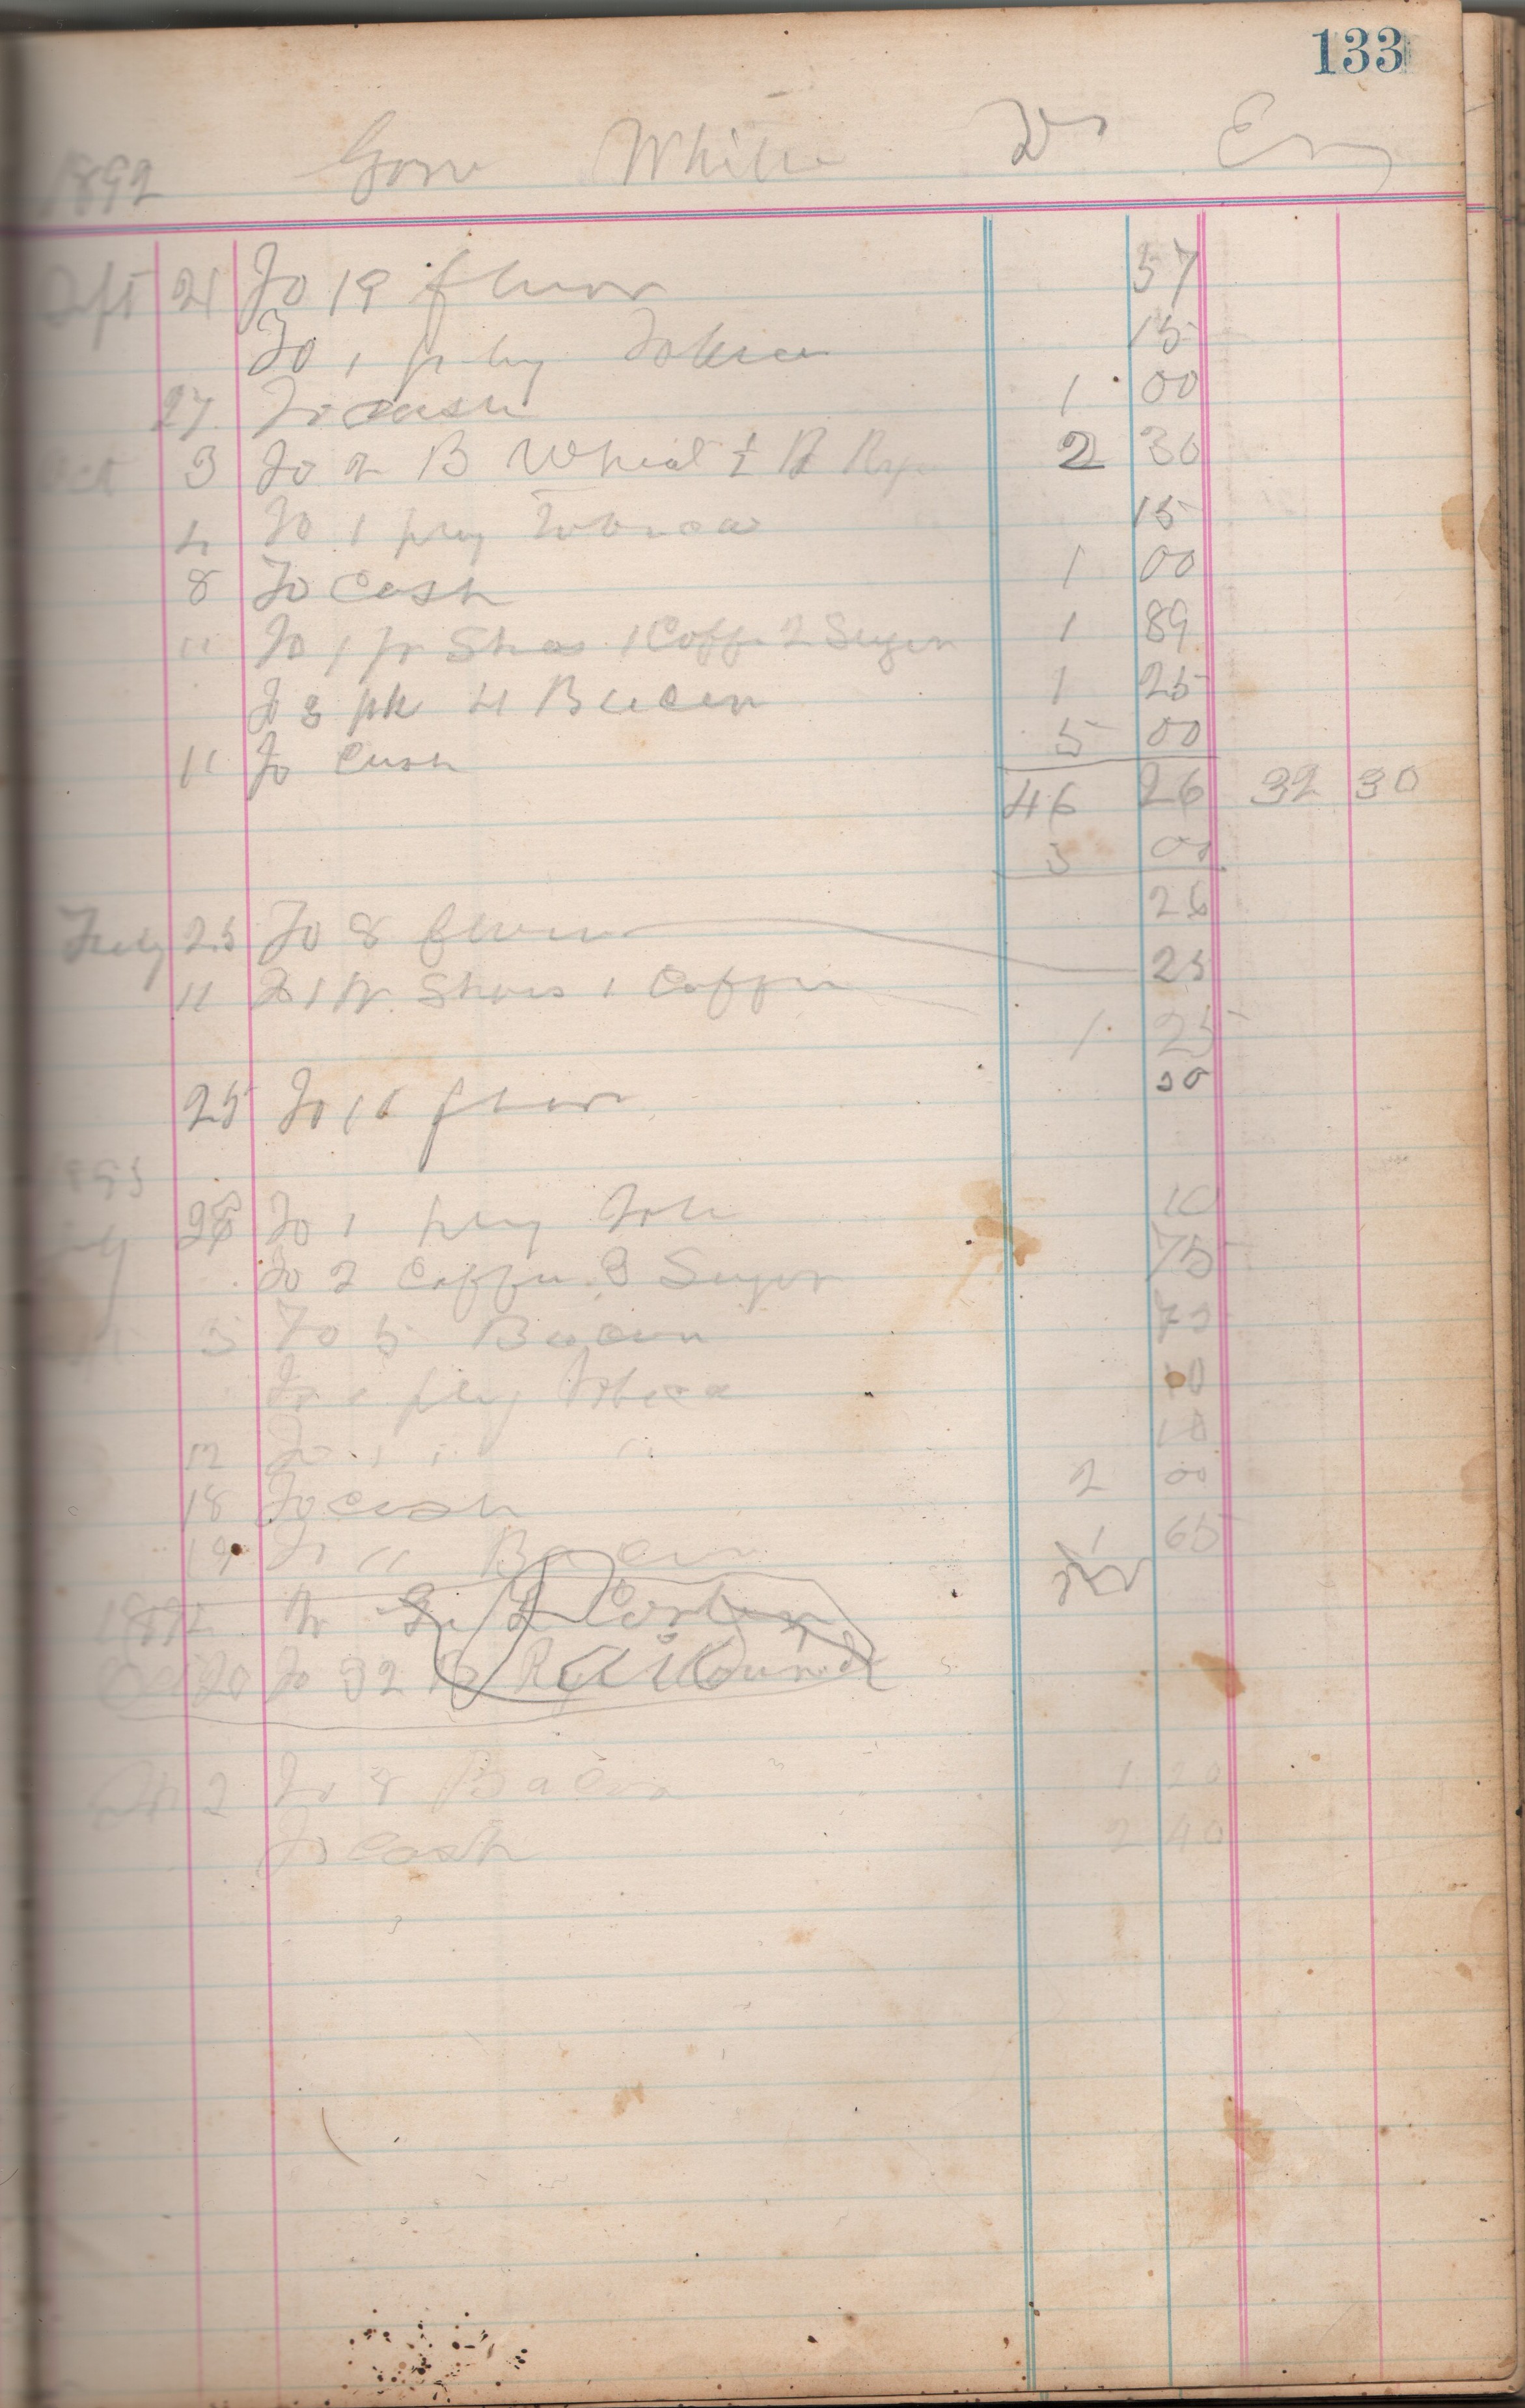 133
1892 White Dr
Sept 21 To 19 flour 57
To 1 plug Tobaco 15
27 To cash 1 00
Oct 3 To 2 B Wheat 1 B Rye 2 30
4 To 1 plug Tobacco 15
8 To Cash 1 00
11 To 1 pr Shoes 1 Coffe 2 Suger 1 89
To 3 pk 4 Bacon 1 25
11 To Cash 5 00
46 26 32 30
5 00
26
July 25 To 8 flour 25
11 To 1 pr Shoes 1 Coffee
1 25
25 To 10 flour 30
1893
28 To 1 plug Tob 10
To 2 Coffee 3 Suger 75
5 To 5 Bacon 75
To 1 plug Tobaca 10
12 To 1 " " 10
18 To cash 2 00
19 To 11 Bacon 1 65
1892
20 To 32 Rye
2 To 8 Bacon 1 20
To Cash 2 40